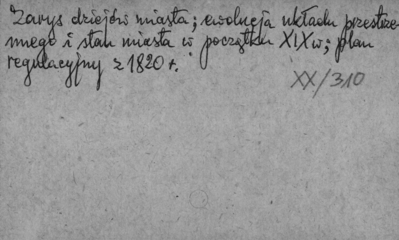 Zarys dziejów miasta; ewolucja układu przestrze-
nnego i stan miasta w początku XIX w; plan
regulacyjny z 1820 r.
XX/310